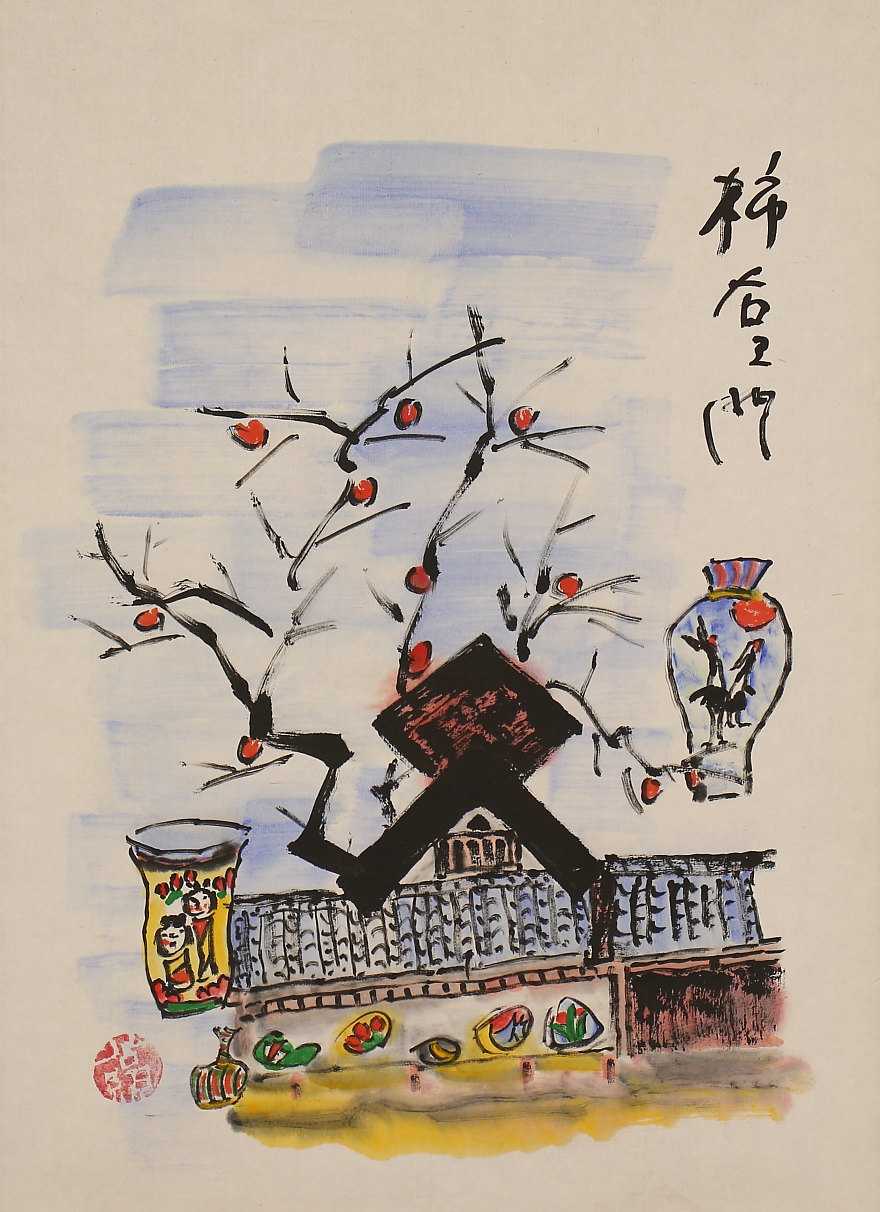 柿右エ門